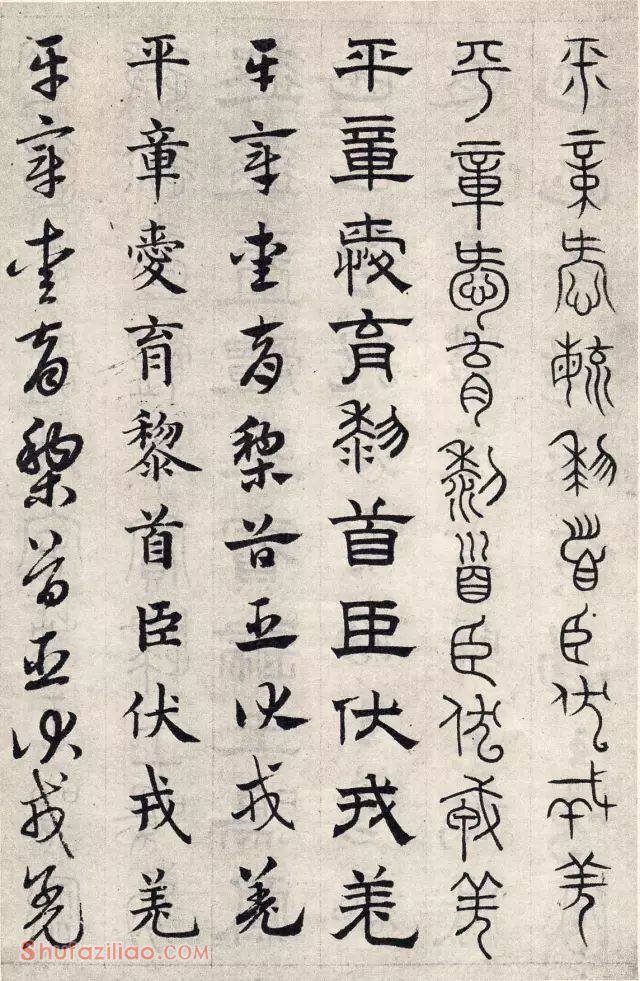 平章愛育黎首臣伏戎羌
平章愛育黎首臣伏戎羌
平章愛育黎首臣伏戎羌
平章愛育黎首臣伏戎羌
平章愛育黎首臣伏戎羌
平章愛育黎首臣伏戎羌
Shufaziliao.COM